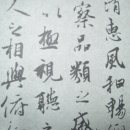 清惠風和暢
察品類之盛
以極視聽之
人之相與俯